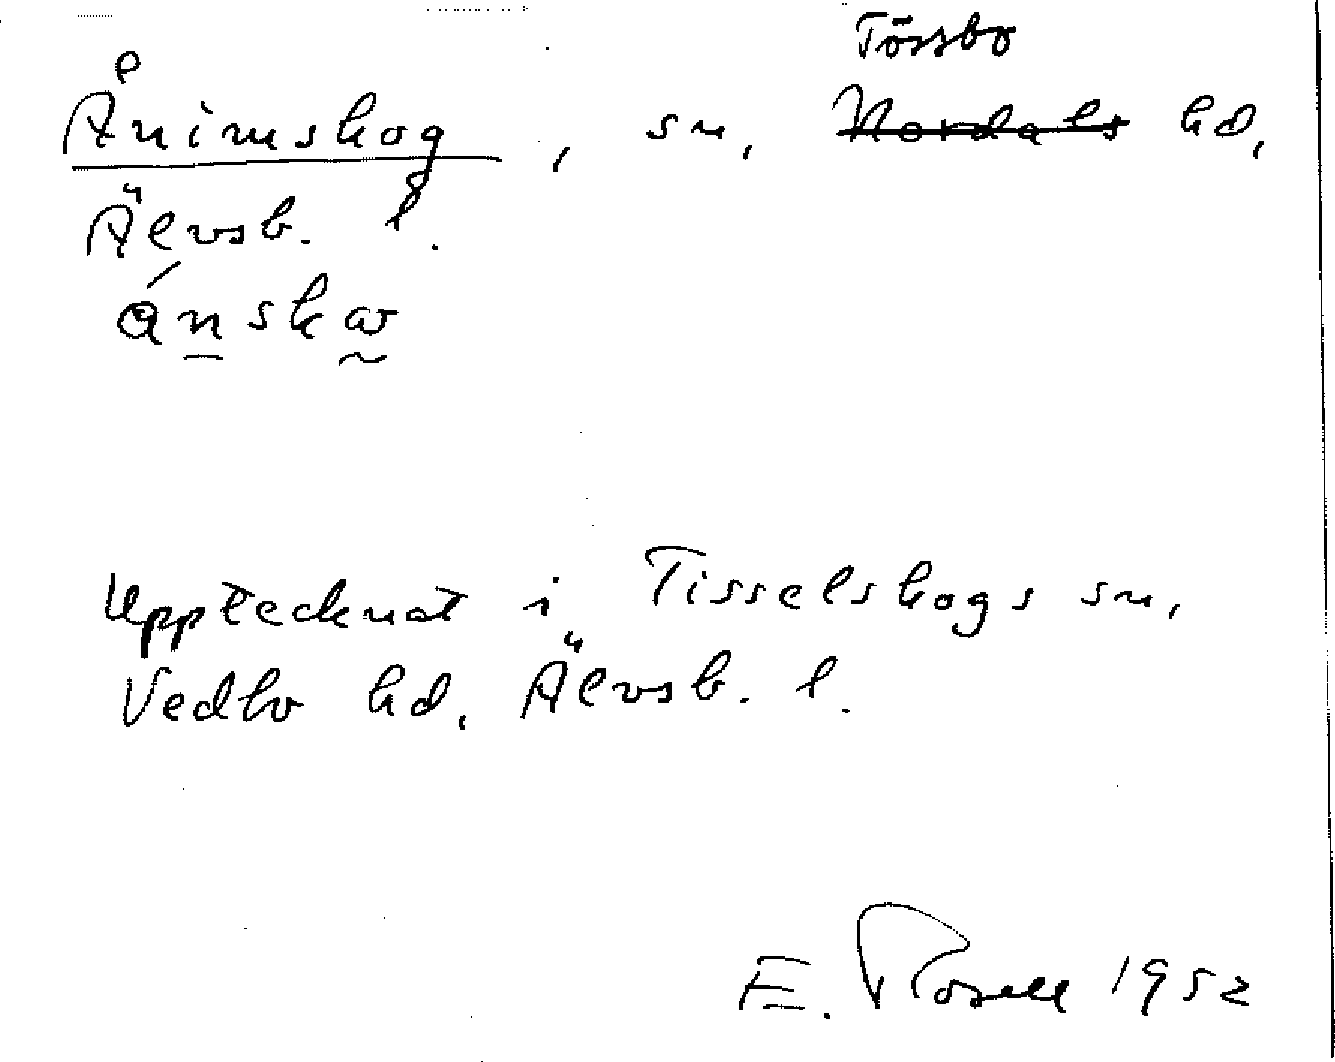 Tössbo
Ånimskog, sn, Nordals hd,
Älvsb. l.
Upptecknat i Tisselskogs sn,
Vedbo hd, Älvsb. l.
E. Rosell 1952